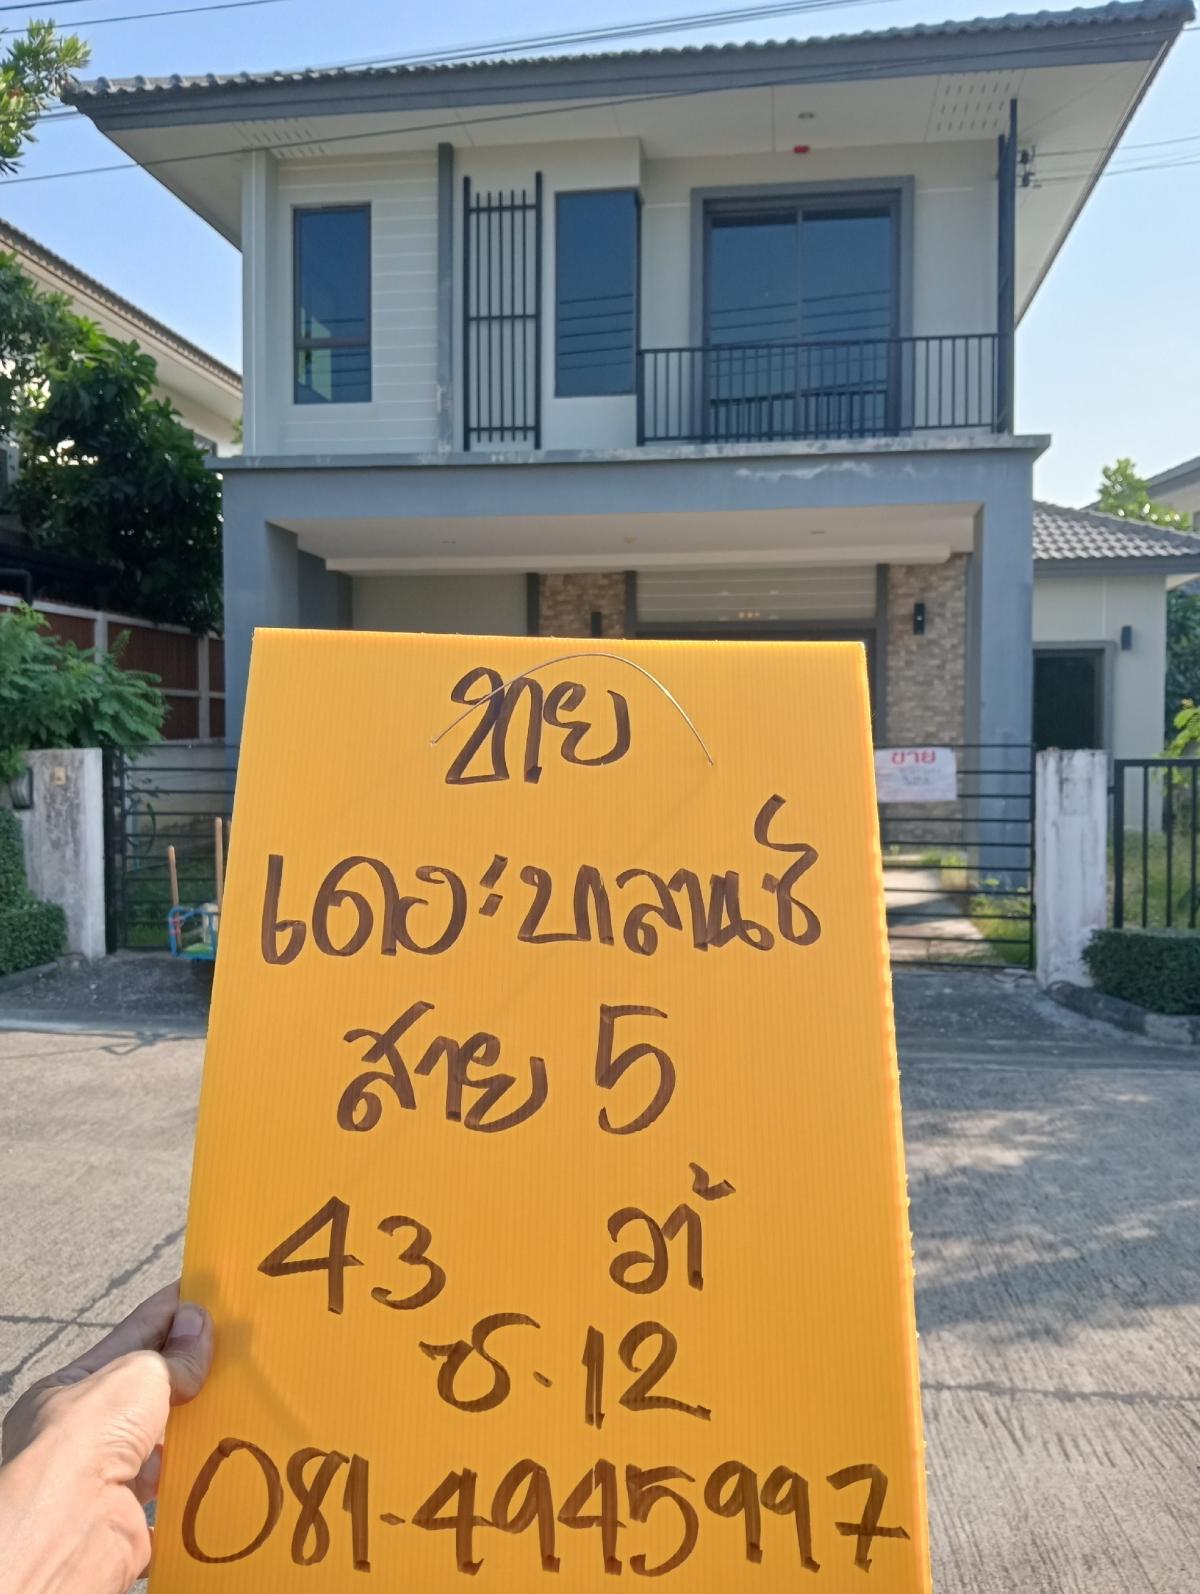 ขาย
เดอะบาลานซ์
สาย 5
43 วา
ซ.12
081-4945997
ขาย